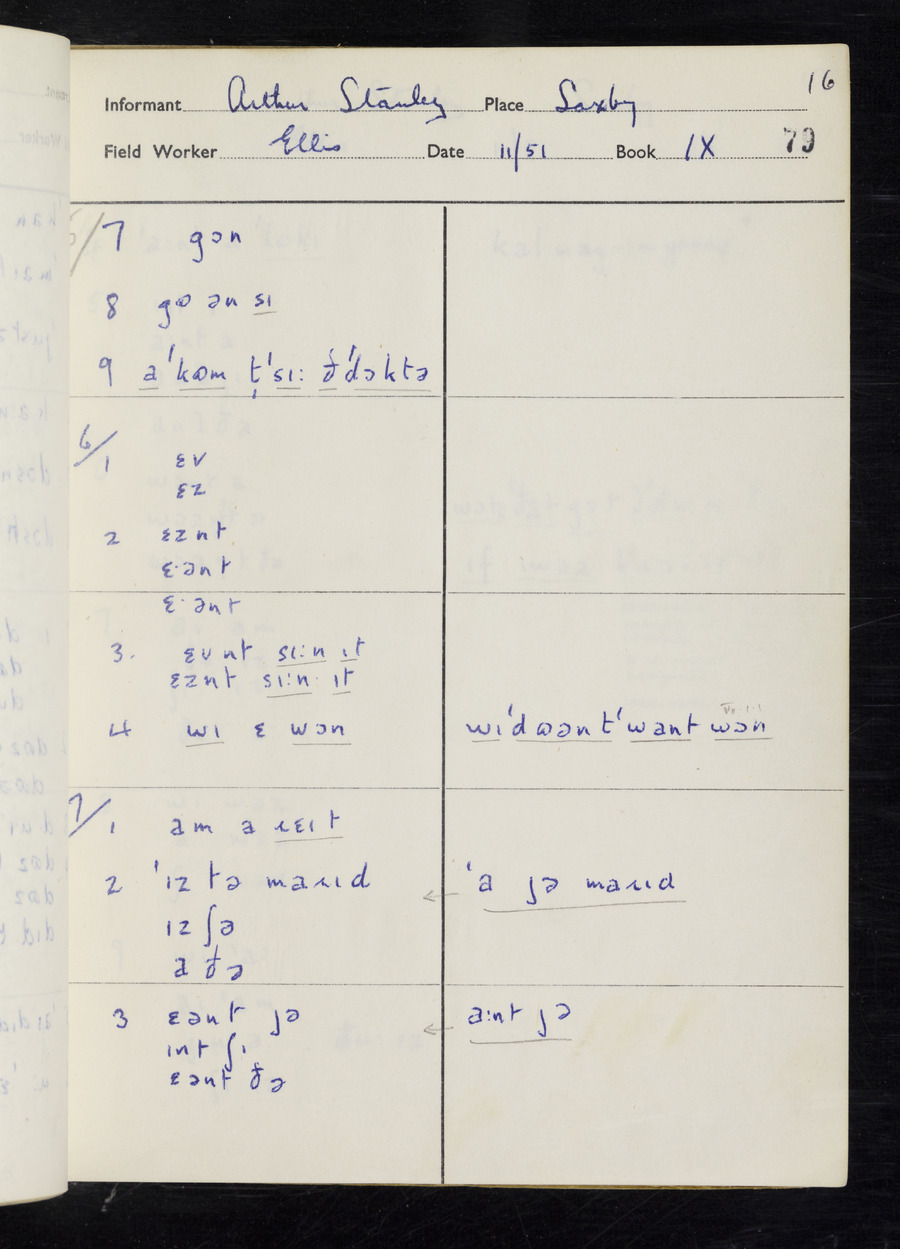 16
Informant Arthur Stanley Place Saxby
Field Worker Ellis Date 11/51 Book IX 79
5/7 gɔn
8 gɷ ən sɪ
9 a ˈkɷm t̩ˈsɪ: ðˈdɔktə
6/1 ɛv
ɛz
2 ɛznt
ɛ·ənt
ɛ·ənt
3. ɛvnt sɪ:n ɪt
ɛznt sɪ:n ɪt
4 wɪ ɛ wɔn wɪˈdɷənt ˈwant wɔn
7/1 am a ɹɛɪt
2 ˈɪz tə maɹɪd ← ˈa jə maɹɪd
ɪz ʃə
a ðə
3 ɛənt jə ← a:nt jə
ɪnt ʃɪ
ɛənt ðə